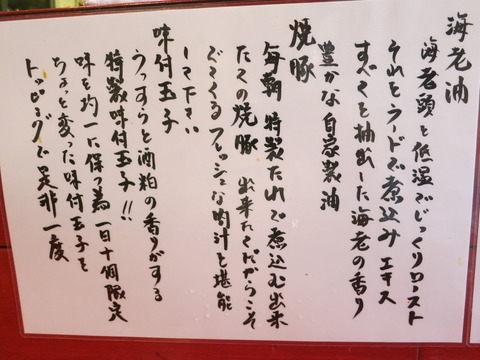 海老油
海老頭と低温でじっくりロースト
それとラードで煮込みエキス
すべてを抽出した海老の香り
豊かな自家製油
焼豚
毎朝特製たれで煮込む出来
たての焼豚 出来たてだからこそ
でてくるフレッシュな肉汁を堪能
して下さい
味付玉子
うっすらと酒粕の香りがする
特製味付玉子!!
味を均一に保つ為一日十個限定
ちょっと変った味付玉子を
トッピングで是非一度